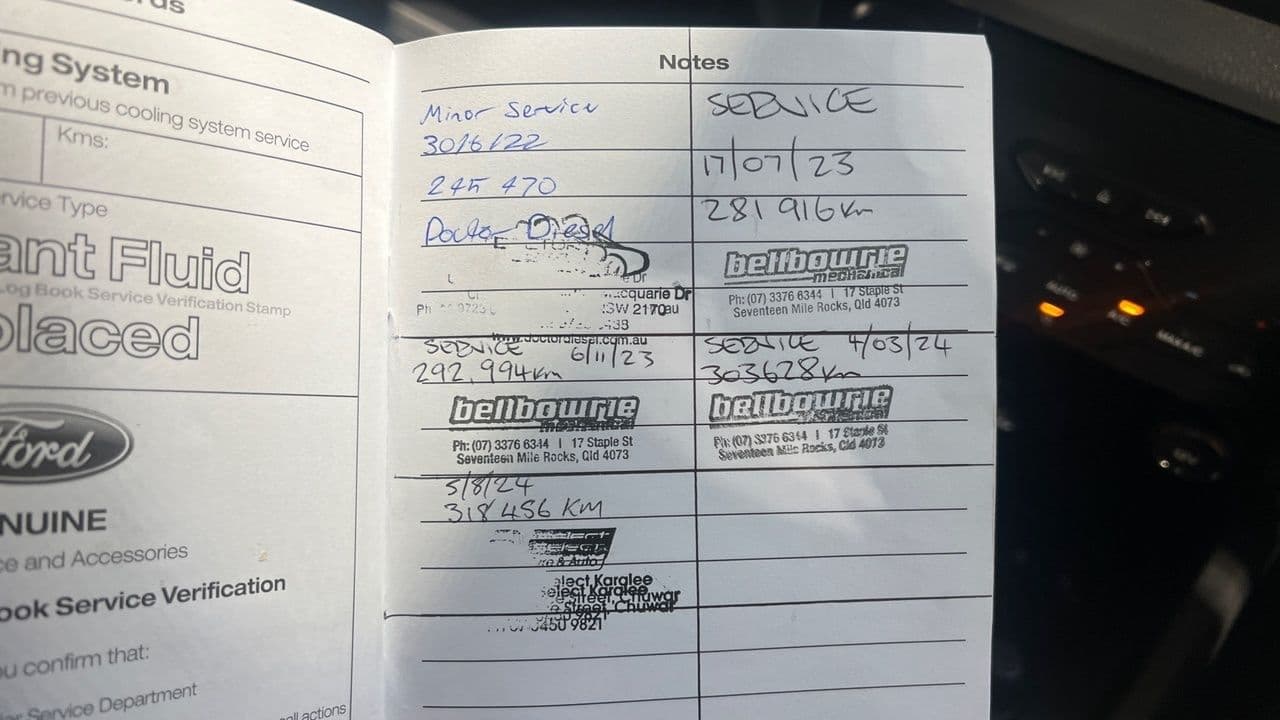 ng System
m previous cooling system service
Kms:
rvice Type
ant Fluid
Log Book Service Verification Stamp
placed
Ford
NUINE
ce and Accessories
ook Service Verification
ou confirm that:
Service Department
all actions
Notes
Minor Service
30/6/22
245 470
Doctor Diesel
acquarie Dr
NSW 2170
www.doctordiesel.com.au
SERVICE
17/07/23
281 916 Km
bellbowrie
mechanical
Ph: (07) 3376 6344 | 17 Staple St
Seventeen Mile Rocks, Qld 4073
SERVICE 6/11/23
292,994 km
bellbowrie
mechanical
Ph: (07) 3376 6344 | 17 Staple St
Seventeen Mile Rocks, Qld 4073
SERVICE 4/03/24
303628 Km
bellbowrie
mechanical
Ph: (07) 3376 6344 | 17 Staple St
Seventeen Mile Rocks, Qld 4073
5/8/24
318 456 KM
& Auto
elect Karalee
elect Karalee
e Street, Chuwar
e Street, Chuwar
3450 9821
AUTO
A/C
MAX A/C